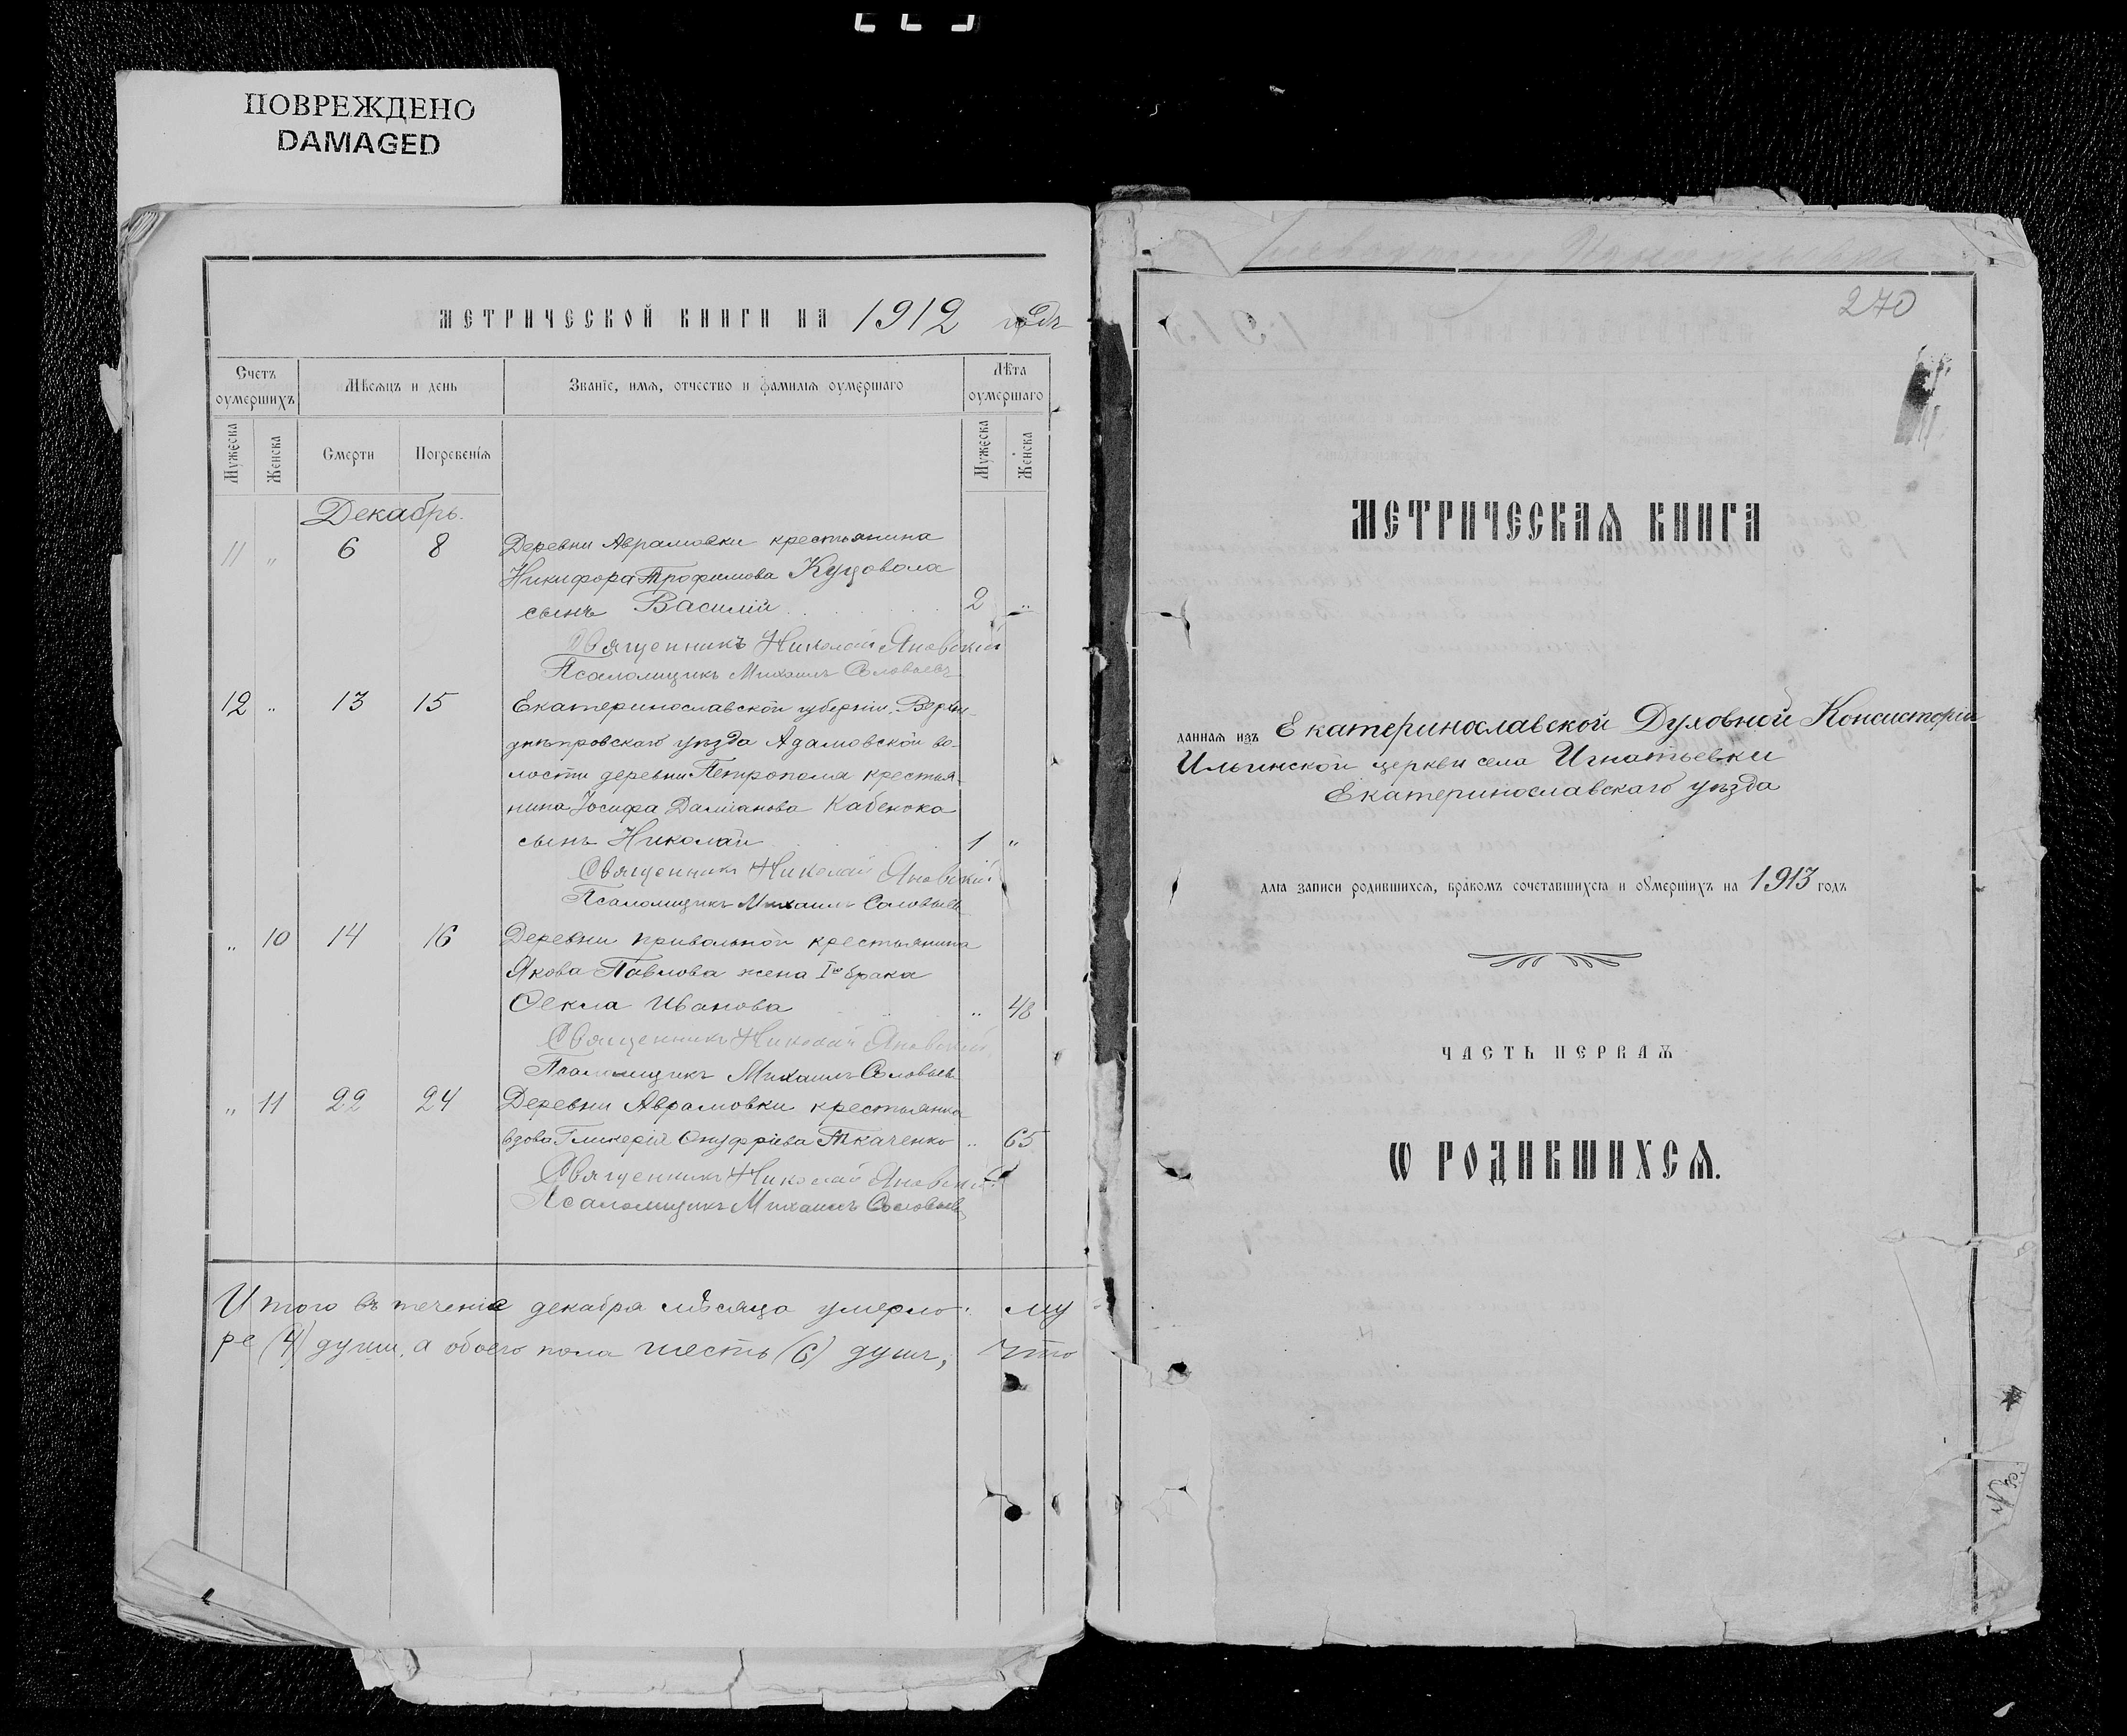 ПОВРЕЖДЕНО
DAMAGED
МЕТРИЧЕСКОЙ КНИГИ НА 1912 годъ
Счетъ оумершихъ
Мѣсяцъ и день
Званіе, имя, отчество и фамилія оумершаго
Лѣта оумершаго
Мужеска
Женска
Смерти
Погребенія
Мужеска
Женска
Декабрь.
11 " 6 8 Деревни Аврамовки крестьянина
Никифора Трофимова Куцовола
сынъ Василій 2 "
Священникъ Николай Яновскій
Псаломщикъ Михаилъ Соловьевъ
12 " 13 15 Екатеринославской губерніи, Верхне-
днѣпровскаго уѣзда Адамовской во-
лости деревни Петрополя крестья-
нина Іосифа Даміанова Кабенока
сынъ Николай 1 "
Священникъ Николай Яновскій
Псаломщикъ Михаилъ Соловьевъ
" 10 14 16 Деревни Привольной крестьянина
Якова Павлова жена Iго брака
Ѳекла Иванова " 48
Священникъ Николай Яновскій
Псаломщикъ Михаилъ Соловьевъ
" 11 22 24 Деревни Аврамовки крестьянка
вдова Гликерія Онуфріева Ткаченко " 65
Священникъ Николай Яновскій
Псаломщикъ Михаилъ Соловьевъ
Итого въ теченіе декабря мѣсяца умерло: му
ре (4) души, а обоего пола шесть (6) душъ, что
270
МЕТРИЧЕСКАЯ КНИГА
данная изъ Екатеринославской Духовной Консисторіи
Ильинской церкви села Игнатьевки
Екатеринославскаго уѣзда
для записи родившихся, бракомъ сочетавшихся и оумершихъ на 1913 годъ
ЧАСТЬ ПЕРВАЯ
Ѡ РОДИВШИХСЯ.